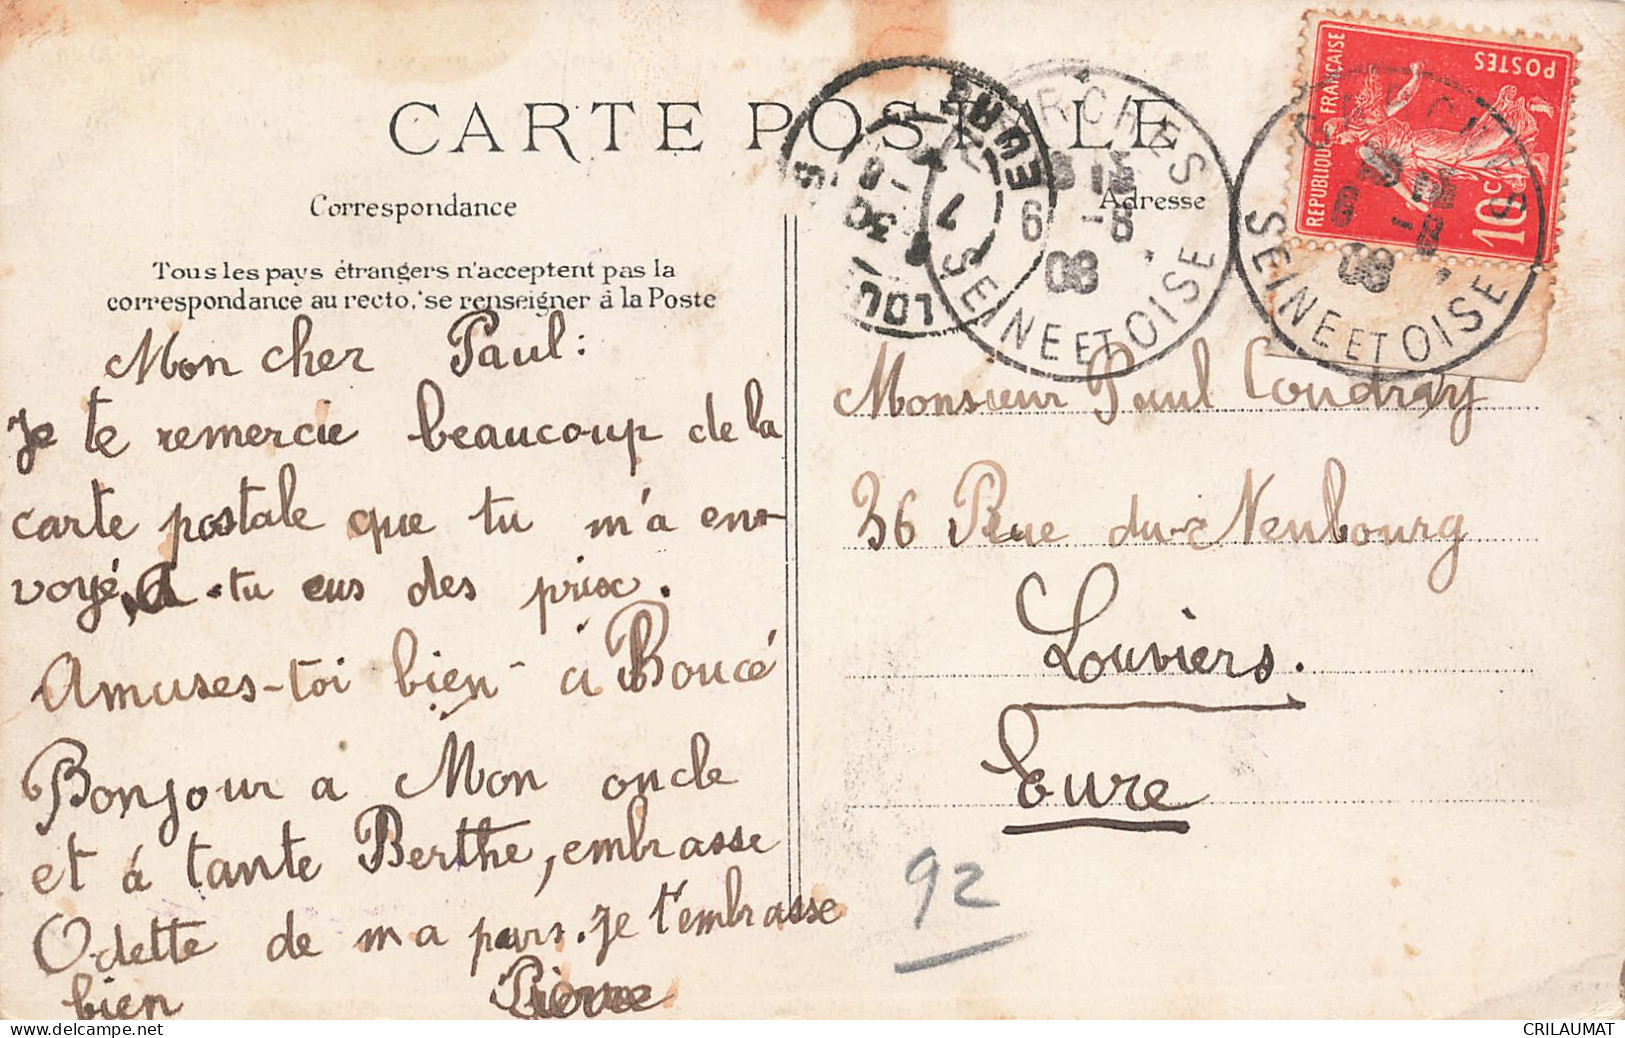 CARTE POSTALE
Correspondance
Adresse
Tous les pays étrangers n'acceptent pas la
correspondance au recto, se renseigner à la Poste
Mon cher Paul:
Je te remercie beaucoup de la
carte postale que tu m'a en-
voyé, a-tu eus des prix.
Amuses-toi bien à Boucé
Bonjour a Mon oncle
et á tante Berthe, embrasse
Odette de ma pars. Je t'embrasse
bien Pierre
Monsieur Paul Coudray
36 Rue du Neubourg
Louviers.
Eure
92
REPUBLIQUE FRANÇAISE
POSTES
10c
GARCHES
6 -8
08
SEINE ET OISE
GARCHES
8 -8
08
SEINE ET OISE
LOUVIERS
EURE
CRILAUMAT